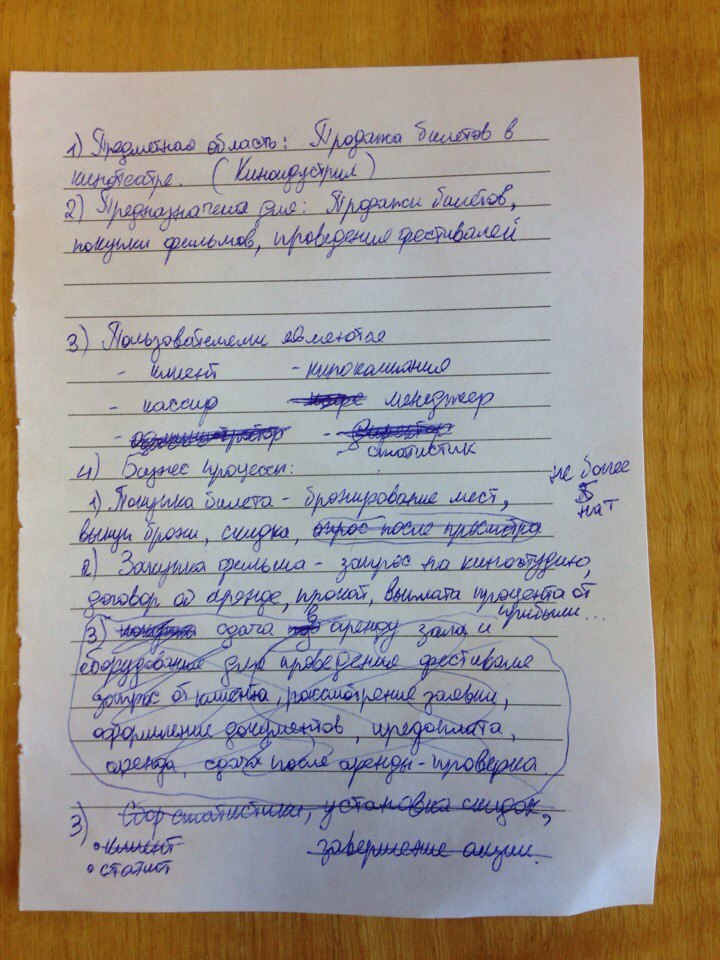 1) Предметная область: Продажа билетов в
кинотеатре. (Киноидустрия)
2) Предназначена для: Продажи билетов,
покупки фильмов, проведения фестивалей
3) Пользователями являются
- клиент - кинокампания
- кассир - менеджер
- администратор - директор
- статистик
4) Бизнес процессы:
не более
5
пит
1) Покупка билета - бронирование мест,
выкуп брони, скидка, опрос после просмотра
2) Закупка фильма - запрос на киностудию,
договор об аренде, прокат, выплата процента от
прибыли...
3) сдача в аренду зала и
оборудование для проведения фестиваля
запрос от клиента, рассмотрение заявки,
оформление документов, предоплата,
аренда, сдача после аренды - проверка
3) Сбор статистики, установка скидок,
• клиент завершение акции.
• статист